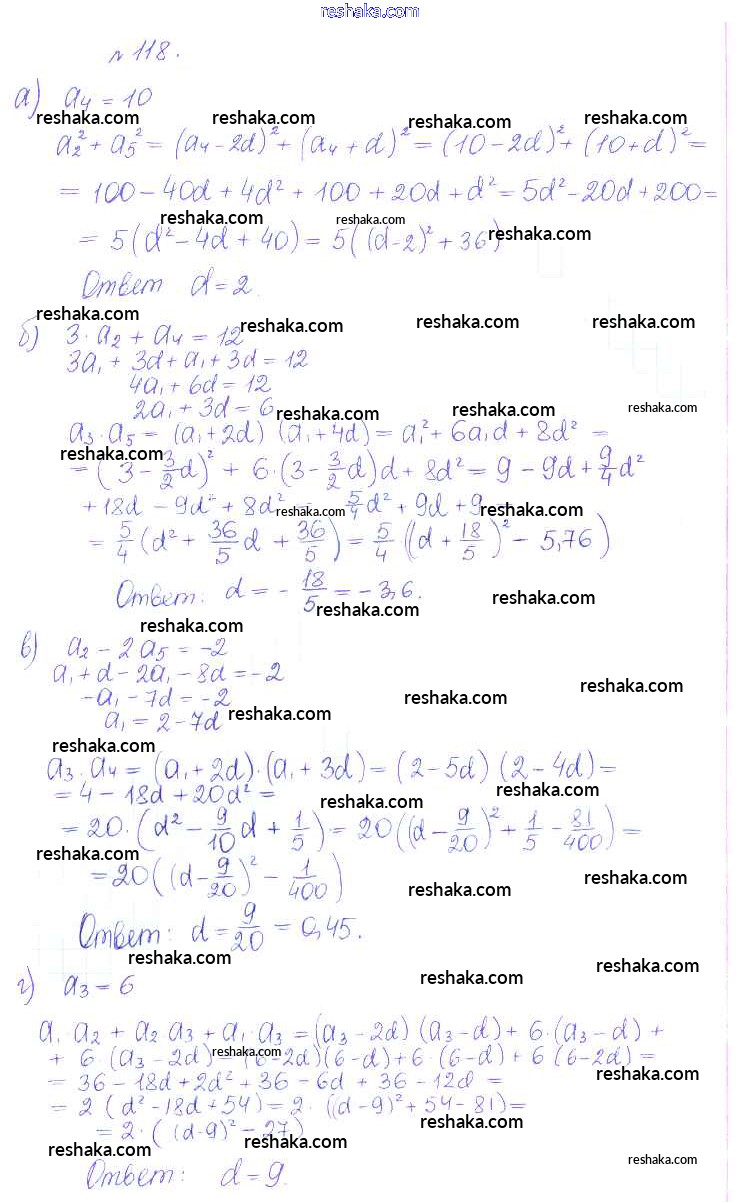 reshaka.com
№118.
а) a₄ = 10
reshaka.com reshaka.com reshaka.com reshaka.com
a₂² + a₅² = (a₄ - 2d)² + (a₄ + d)² = (10 - 2d)² + (10 + d)² =
= 100 - 40d + 4d² + 100 + 20d + d² = 5d² - 20d + 200 =
reshaka.com reshaka.com reshaka.com
= 5(d² - 4d + 40) = 5((d-2)² + 36)
Ответ d = 2.
reshaka.com reshaka.com reshaka.com reshaka.com
б) 3·a₂ + a₄ = 12
3a₁ + 3d + a₁ + 3d = 12
4a₁ + 6d = 12
2a₁ + 3d = 6
reshaka.com reshaka.com reshaka.com
a₃·a₅ = (a₁ + 2d)(a₁ + 4d) = a₁² + 6a₁d + 8d² =
reshaka.com reshaka.com reshaka.com
= (3 - 3/2 d)² + 6·(3 - 3/2 d)d + 8d² = 9 - 9d + 9/4 d²
+ 18d - 9d² + 8d² = 5/4 d² + 9d + 9 =
reshaka.com reshaka.com
= 5/4 (d² + 36/5 d + 36/5) = 5/4 ((d + 18/5)² - 5,76)
Ответ: d = - 18/5 = - 3,6.
reshaka.com reshaka.com
reshaka.com
в) a₂ - 2a₅ = -2
a₁ + d - 2a₁ - 8d = -2
-a₁ - 7d = -2
reshaka.com reshaka.com reshaka.com
a₁ = 2 - 7d
reshaka.com
a₃·a₄ = (a₁ + 2d)·(a₁ + 3d) = (2 - 5d)(2 - 4d) =
= 4 - 18d + 20d² =
reshaka.com reshaka.com
= 20·(d² - 9/10 d + 1/5) = 20((d - 9/20)² + 1/5 - 81/400) =
reshaka.com
= 20((d - 9/20)² - 1/400)
reshaka.com reshaka.com
Ответ: d = 9/20 = 0,45.
reshaka.com reshaka.com reshaka.com
г) a₃ = 6
a₁a₂ + a₂a₃ + a₁·a₃ = (a₃ - 2d)(a₃ - d) + 6·(a₃ - d) +
+ 6·(a₃ - 2d) = (6 - 2d)(6 - d) + 6·(6 - d) + 6(6 - 2d) =
reshaka.com reshaka.com
= 36 - 18d + 2d² + 36 - 6d + 36 - 12d =
= 2(d² - 18d + 54) = 2·((d - 9)² + 54 - 81) =
reshaka.com reshaka.com
= 2·((d - 9)² - 27)
reshaka.com reshaka.com reshaka.com
Ответ: d = 9.